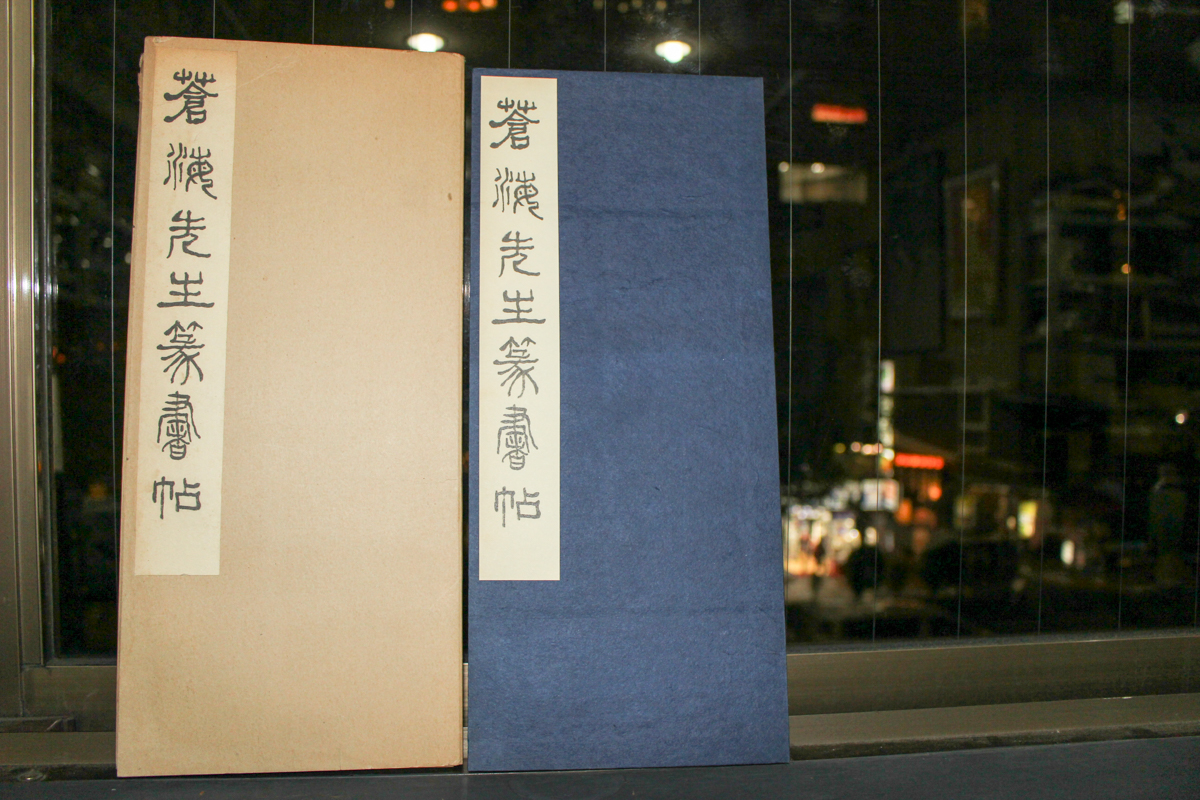 蒼海先生篆書帖
蒼海先生篆書帖